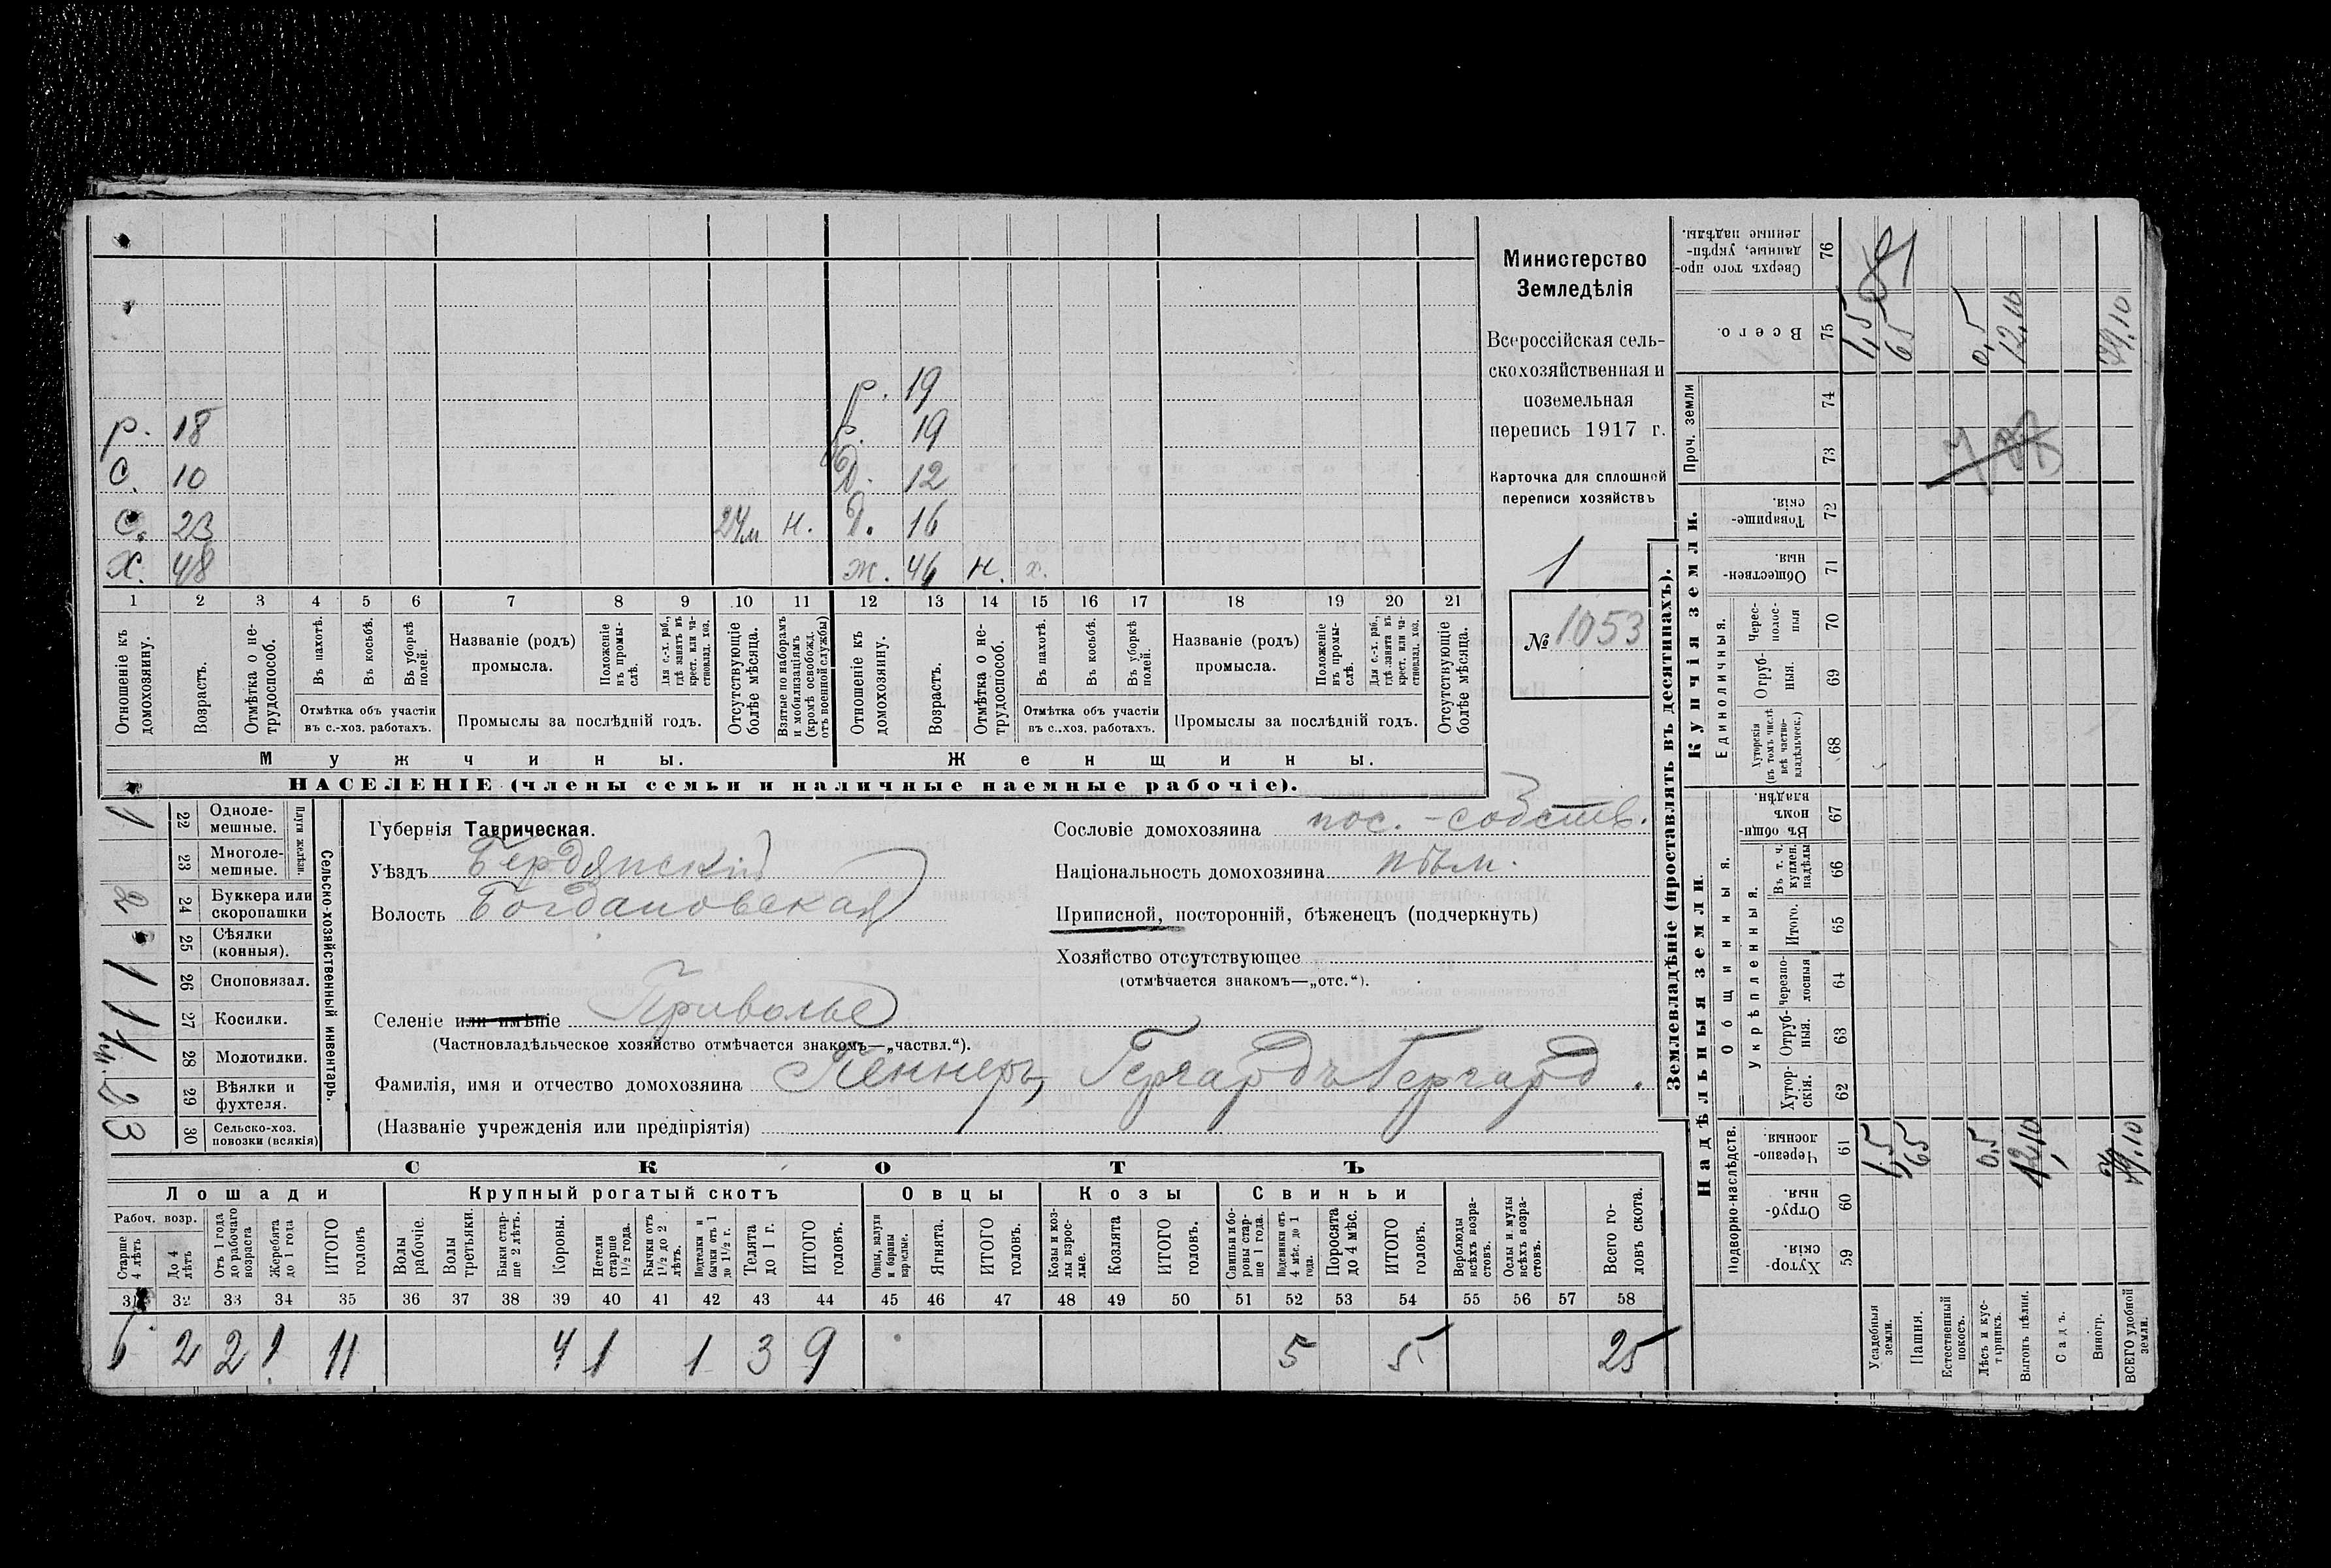 р. 19
р. 18 р. 19
с. 10 д. 12
с. 23 24м н. д. 16
х. 48 ж. 46 н. х.
1 2 3 4 5 6 7 8 9 10 11 12 13 14 15 16 17 18 19 20 21
Отношеніе къ домохозяину.
Возрастъ.
Отмѣтка о не-трудоспособ.
Въ пахотѣ.
Въ косьбѣ.
Въ уборкѣ полей.
Отмѣтка объ участіи въ с.-хоз. работахъ.
Названіе (родъ) промысла.
Положеніе въ промы-слѣ.
Для с.-х. раб., гдѣ занятъ въ крест. или ча-стновлад. хоз.
Промыслы за послѣдній годъ.
Отсутствующіе болѣе мѣсяца.
Взятые по наборамъ и мобилизаціямъ (кромѣ освобожд. отъ военной службы)
Отношеніе къ домохозяину.
Возрастъ.
Отмѣтка о не-трудоспособ.
Въ пахотѣ.
Въ косьбѣ.
Въ уборкѣ полей.
Отмѣтка объ участіи въ с.-хоз. работахъ.
Названіе (родъ) промысла.
Положеніе въ промы-слѣ.
Для с.-х. раб., гдѣ занятъ въ крест. или ча-стновлад. хоз.
Промыслы за послѣдній годъ.
Отсутствующіе болѣе мѣсяца.
Мужчины. Женщины.
НАСЕЛЕНІЕ (члены семьи и наличные наемные рабочіе).
Министерство
Земледѣлія
Всероссійская сель-
скохозяйственная и
поземельная
перепись 1917 г.
Карточка для сплошной
переписи хозяйствъ
1
№ 1053
Сельско-хозяйственный инвентарь.
Плуги желѣзн.
1 22 Одноле-мешные.
23 Многоле-мешные.
2 24 Буккера или скоропашки
25 Сѣялки (конныя).
1 26 Сноповязал.
1 27 Косилки.
28 Молотилки.
2 29 Вѣялки и фухтеля.
3 30 Сельско-хоз. повозки (всякія)
Губернія Таврическая.
Уѣздъ Бердянскій
Волость Богдановская
Сословіе домохозяина пос.-собств.
Національность домохозяина нѣм.
Приписной, посторонній, бѣженецъ (подчеркнуть)
Хозяйство отсутствующее
(отмѣчается знакомъ—„отс.“).
Селеніе или имѣніе Приволье
(Частновладѣльческое хозяйство отмѣчается знакомъ—„частвл.“).
Фамилія, имя и отчество домохозяина Пеннеръ, Гергардъ Гергард.
(Названіе учрежденія или предпріятія)
СКОТЪ
Лошади Крупный рогатый скотъ Овцы Козы Свиньи
Рабоч. возр.
Старше 4 лѣтъ
До 4 лѣтъ
Отъ 1 года до рабочаго возраста
Жеребята до 1 года
ИТОГО головъ
Волы рабочіе.
Волы третьяки.
Быки стар-ше 2 лѣтъ.
Коровы.
Нетели старше 1½ года.
Бычки отъ 1½ до 2 лѣтъ.
Подтелки и бычки отъ 1 до 1½ г.
Телята до 1 г.
ИТОГО головъ.
Овцы, валухи и бараны взрослые.
Ягнята.
ИТОГО головъ.
Козы и коз-лы взрос-лые.
Козлята
ИТОГО головъ.
Свиньи и бо-ровы стар-ше 1 года.
Подсвинки отъ 4 мѣс. до 1 года.
Поросята до 4 мѣс.
ИТОГО головъ.
Верблюды всѣхъ возра-стовъ.
Ослы и мулы всѣхъ возра-стовъ.
Всего го-ловъ скота.
31 32 33 34 35 36 37 38 39 40 41 42 43 44 45 46 47 48 49 50 51 52 53 54 55 56 57 58
6 2 2 1 11 4 1 1 3 9 5 5 25
Землевладѣніе (проставлять въ десятинахъ).
Надѣльныя земли Купчія земли.
Проч. земли
Подворно-наслѣдств.
Общинныя.
Укрѣпленныя.
Единоличныя.
Сверхъ того про-данные, укрѣп-ленные надѣлы. 76
Всего. 75 1,5 65 0,5 12,10 79,10
74
73
Товарище-скія. 72
Обществен-ныя. 71
Черес-полос-ныя 70
Отруб-ныя. 69
Хуторскія (въ томъ числѣ всѣ частно-владѣльческ.) 68
Въ общин-номъ владѣн. 67
Въ т. ч. куплен. надѣлы 66
Итого. 65
Черезпо-лосныя 64
Отруб-ныя. 63
Хутор-скія. 62
Черезпо-лосныя 61 1,5 65 0,5 12,10 79,10
Отруб-ныя. 60
Хутор-скія. 59
Усадебныя земли.
Пашня.
Естественный покосъ.
Лѣсъ и кус-тарникъ.
Выгонъ цѣлин.
Садъ.
Виногр.
ВСЕГО удобной земли.